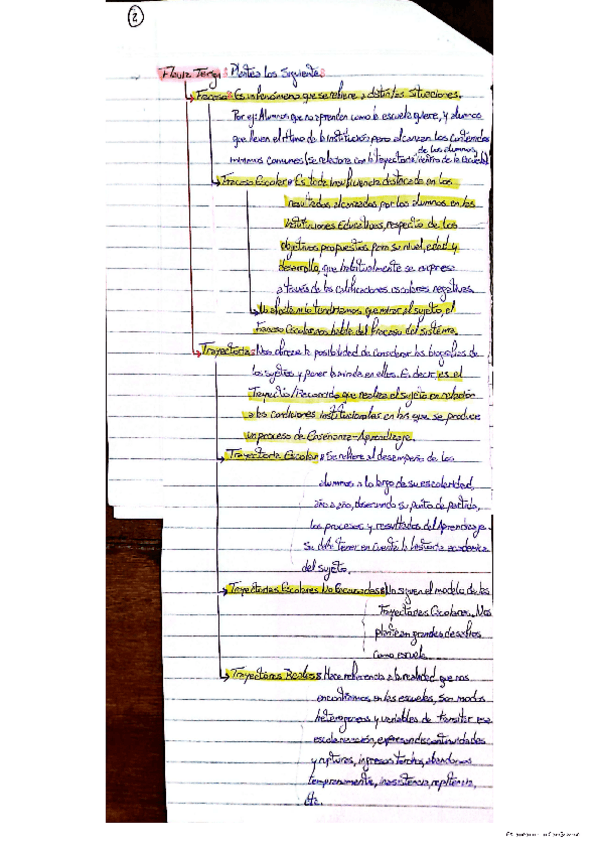 2
Flavia Terigi: Plantea los siguiente:
Fracaso: Es un fenómeno que se refiere a distintas situaciones.
Por ej: Alumnos que no aprenden como la escuela quiere, y alumnos
que lleven el ritmo de la institución pero alcanzan los contenidos
de los alumnos,
mínimos comunes (se relaciona con la Trayectoria dentro de la Escuela)
Fracaso Escolar: Es toda insuficiencia destacada en los
resultados alcanzados por los alumnos en las
Instituciones Educativas, respecto de los
objetivos propuestos para su nivel, edad y
desarrollo, que habitualmente se expresa
a través de las calificaciones escolares negativas.
tendríamos que mirar al sujeto, el
Fracaso Escolar nos habla del Fracaso del sistema.
Trayectoria: Nos ofrece la posibilidad de considerar las biografías de
los sujetos y poner la mirada en ellos. Es decir, es el
Trayecto/Recorrido que realiza el sujeto en relación
a las condiciones institucionales en las que se produce
un proceso de Enseñanza-Aprendizaje.
Trayectoria Escolar: Se refiere al desempeño de los
alumnos a lo largo de su escolaridad,
año a año, observando su punto de partida,
los procesos y resultados del Aprendizaje.
Se debe tener en cuenta la historia académica
del sujeto.
Trayectorias Escolares No Encauzadas: No siguen el modelo de las
Trayectorias Escolares. Nos
plantean grandes desafíos
como escuela.
Trayectorias Reales: Hace referencia a la realidad que nos
encontramos en las escuelas, son modos
heterogéneos y variables de transitar esa
escolarización, expresan discontinuidades
y rupturas, ingresos tardíos, abandonos
tempranamente, inasistencia, repitencia,
etc.